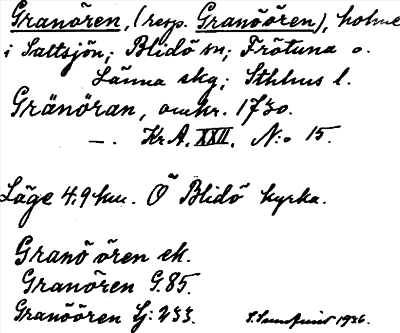 Granören, (resp. Granöören), holme
i Saltsjön; Blidö sn; Frötuna o.
Länna skg; Sthlms l.
Gränöran, omkr. 1730.
—. KrA. XXII. N:o 15.
Läge 4,9 km. Ö Blidö kyrka.
Granö ören ek.
Granören G.85.
Granöören Lj: 233.
1936.